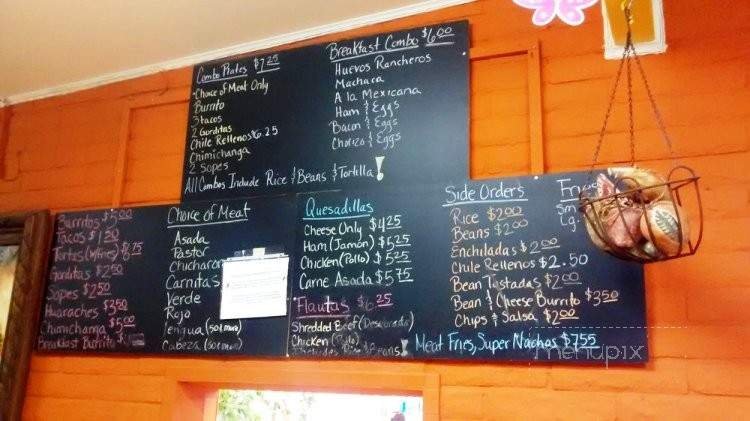 Combo Plates $7.25
Choice of Meat Only
Burrito
3 tacos
2 Gorditas
Chile Rellenos $6.25
Chimichanga
2 Sopes
All Combos Include Rice & Beans & Tortilla!
Breakfast Combo $6.00
Huevos Rancheros
Machaca
A la Mexicana
Ham & Eggs
Bacon & Eggs
Chorizo & Eggs
Burritos $5.00
Tacos $1.50
Tortas
Gorditas $2.50
Sopes $2.50
Huaraches $3.50
Chimichanga $5.00
Breakfast Burrito
Choice of Meat
Asada
Pastor
Carnitas
Verde
Rojo
Lengua (50¢ more)
Cabeza (50¢ more)
Quesadillas
Cheese Only $4.25
Ham (Jamon) $5.25
Chicken (Pollo) $5.25
Carne Asada $5.75
Flautas $6.25
Shredded Beef (Desebrada)
Chicken (Pollo)
Includes Rice & Beans!
Side Orders
Rice $2.00
Beans $2.00
Enchiladas $2.00
Chile Rellenos $2.50
Bean Tostadas $2.00
Bean & Cheese Burrito $3.50
Chips & Salsa $2.00
Meat Fries, Super Nachos $7.55
menupix